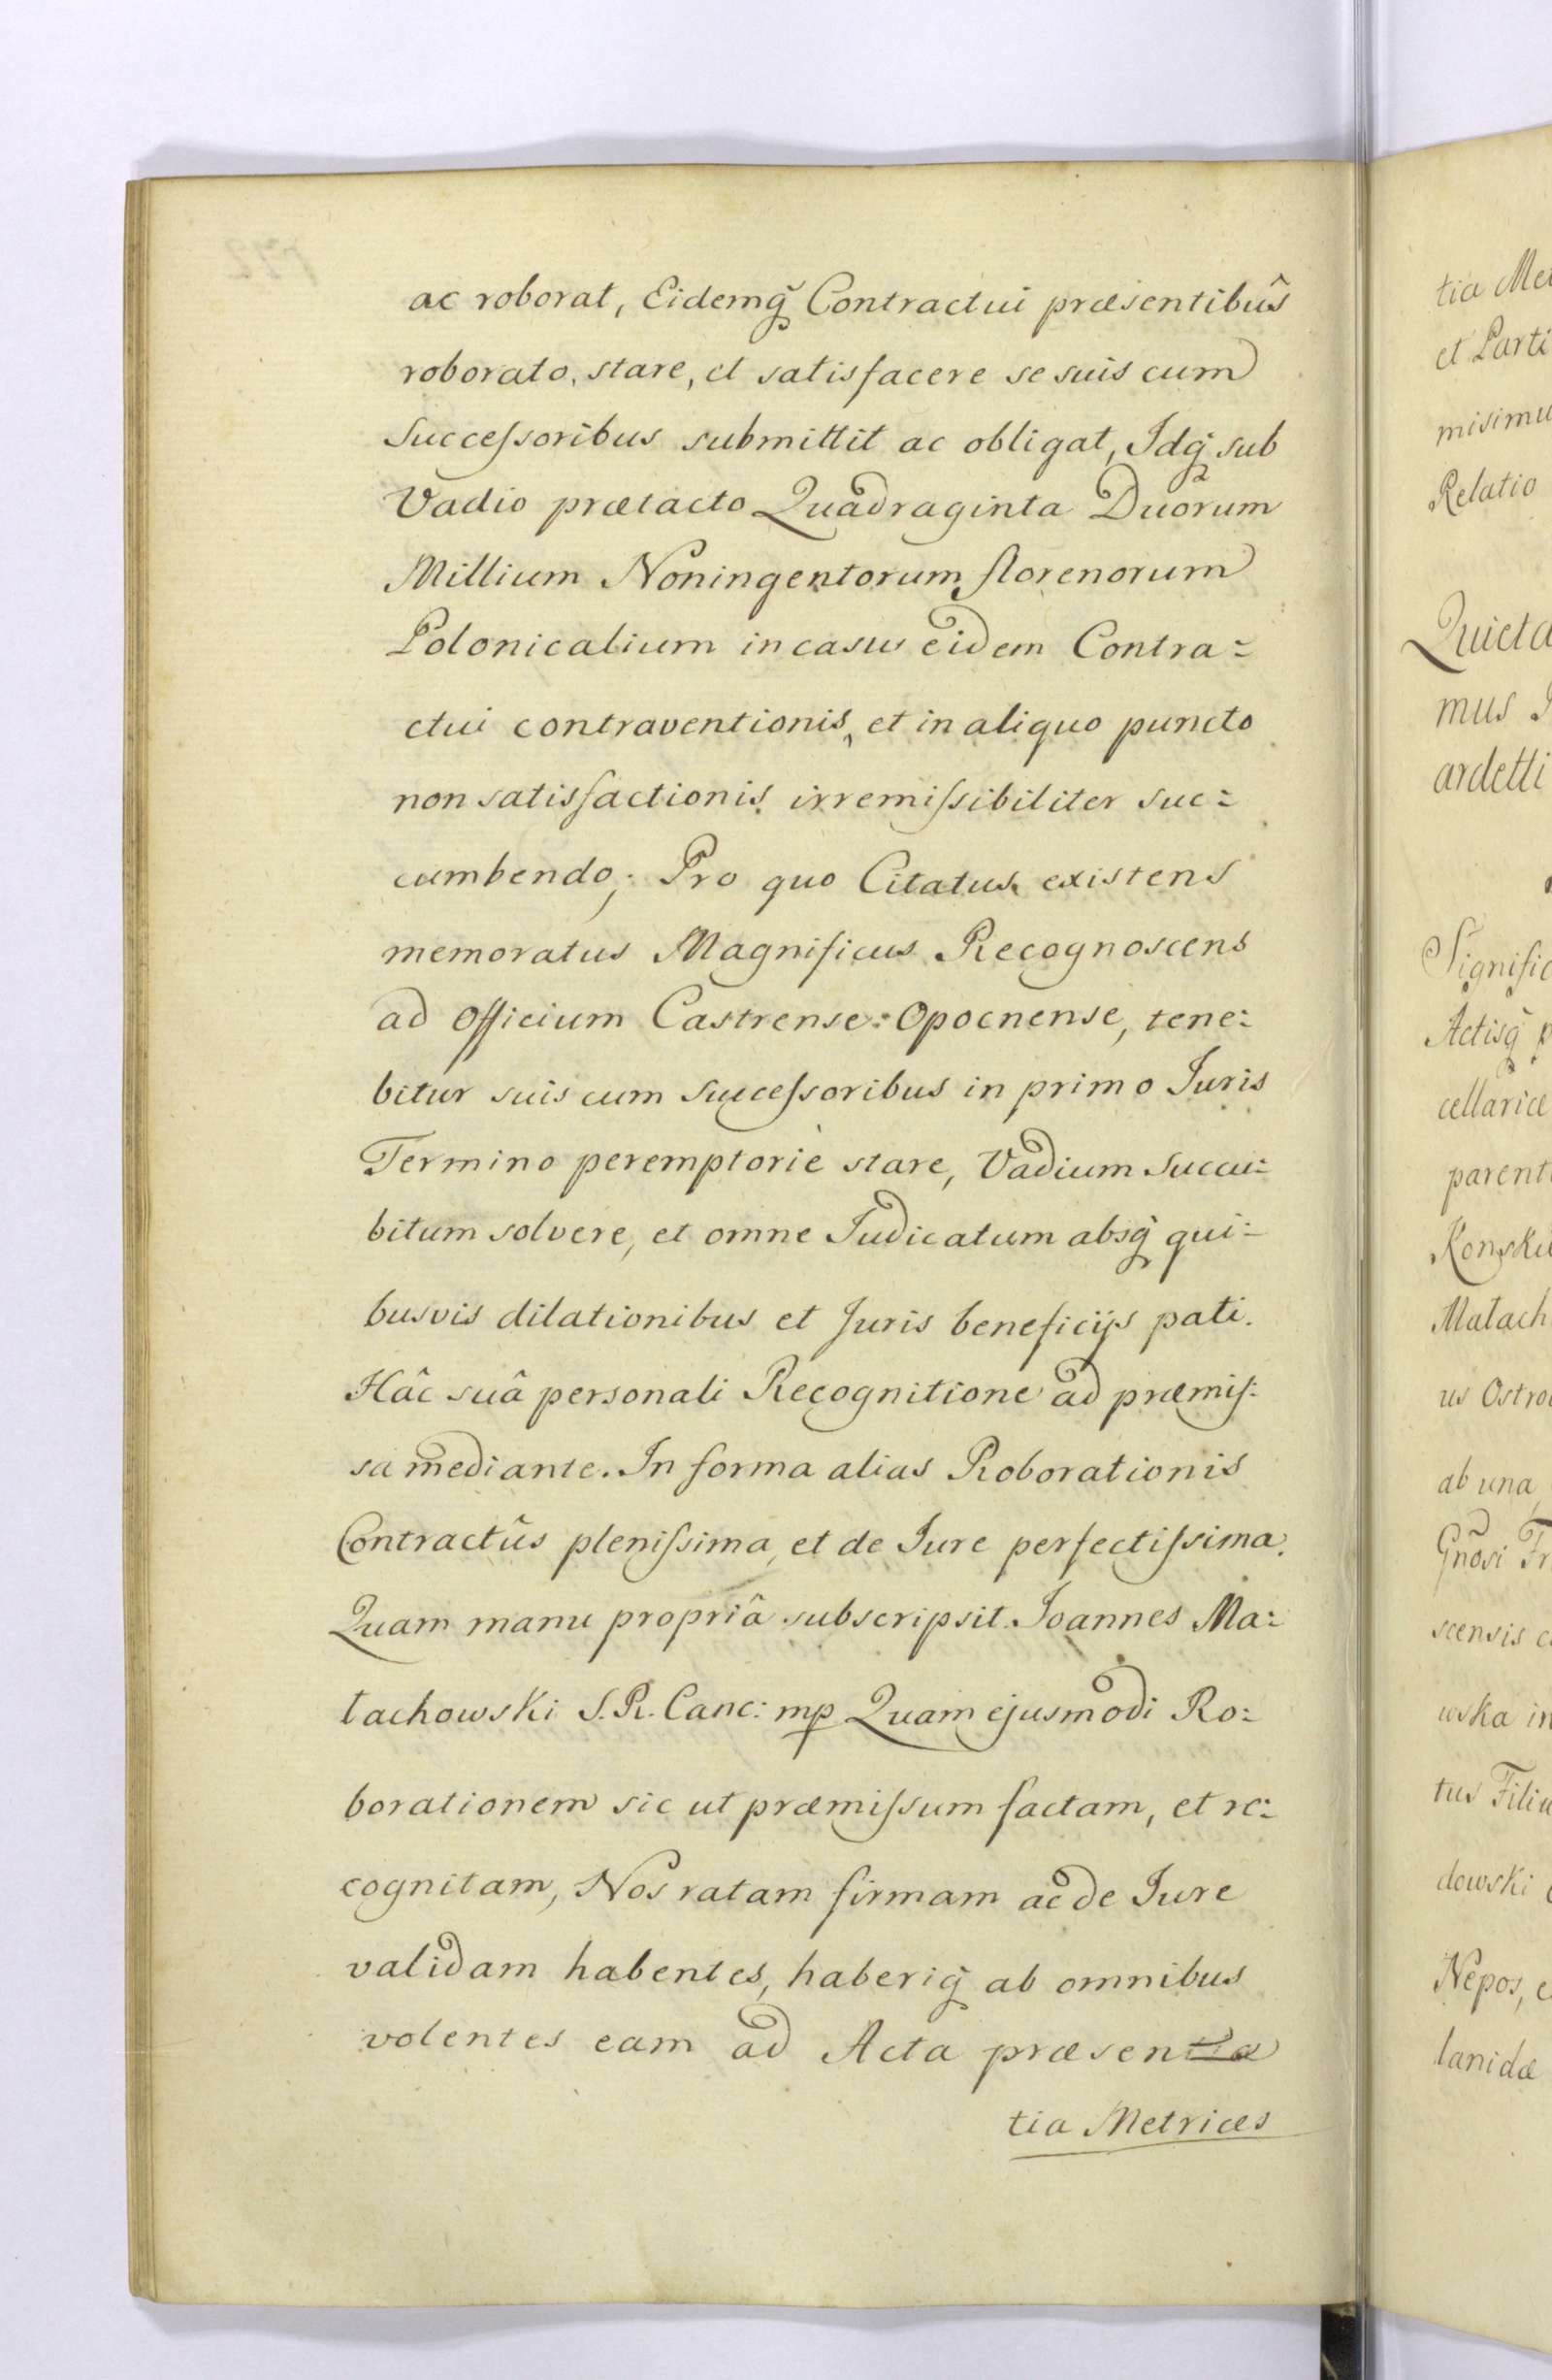 ac roborat, Eidemq̃ Contractui præsentibûs
roborato, stare, et satisfacere se suis cum
Succeſsoribus submittit ac obligat, Idq̃ sub
Vadio prætacto Quadraginta Duorum
Millium Noningentorum florenorum
Polonicalium in casu eidem Contra=
ctui contraventionis, et in aliquo puncto
non satisfactionis irremiſsibiliter suc=
cumbendo; Pro quo Citatus existens
memoratus Magnificus Recognoscens
ad Officium Castrense Opocnense, tene=
bitur suis cum Succeſsoribus in primo Juris
Termino peremptorie stare, Vadium Succu=
bitum solvere, et omne Judicatum absq̃ qui=
busvis dilationibus et Juris beneficijs pati.
Hâc suâ personali Recognitione ad præmiſ=
sa mediante. In forma alias Roborationis
Contractûs pleniſsima, et de Jure perfectiſsima.
Quam manu propriâ subscripsit. Joannes Ma=
łachowski S. R. Canc: mp Quam ejusmodi Ro=
borationem sic ut præmiſsum factam, et re=
cognitam, Nos ratam firmam ac de Jure
validam habentes, haberiq̃ ab omnibus
volentes eam ad Acta præsentia
tia Metrices
tia Met
et Parti
misimu
Relatio
Quieta
mus
ardetti
Signific
Actisq̃ p
cellariæ
parent
Konski
Małach
us Ostro
ab una
Gnosi Fr
scensis c
wska in
tus Filiu
dowski
Nepos, e
lanidæ